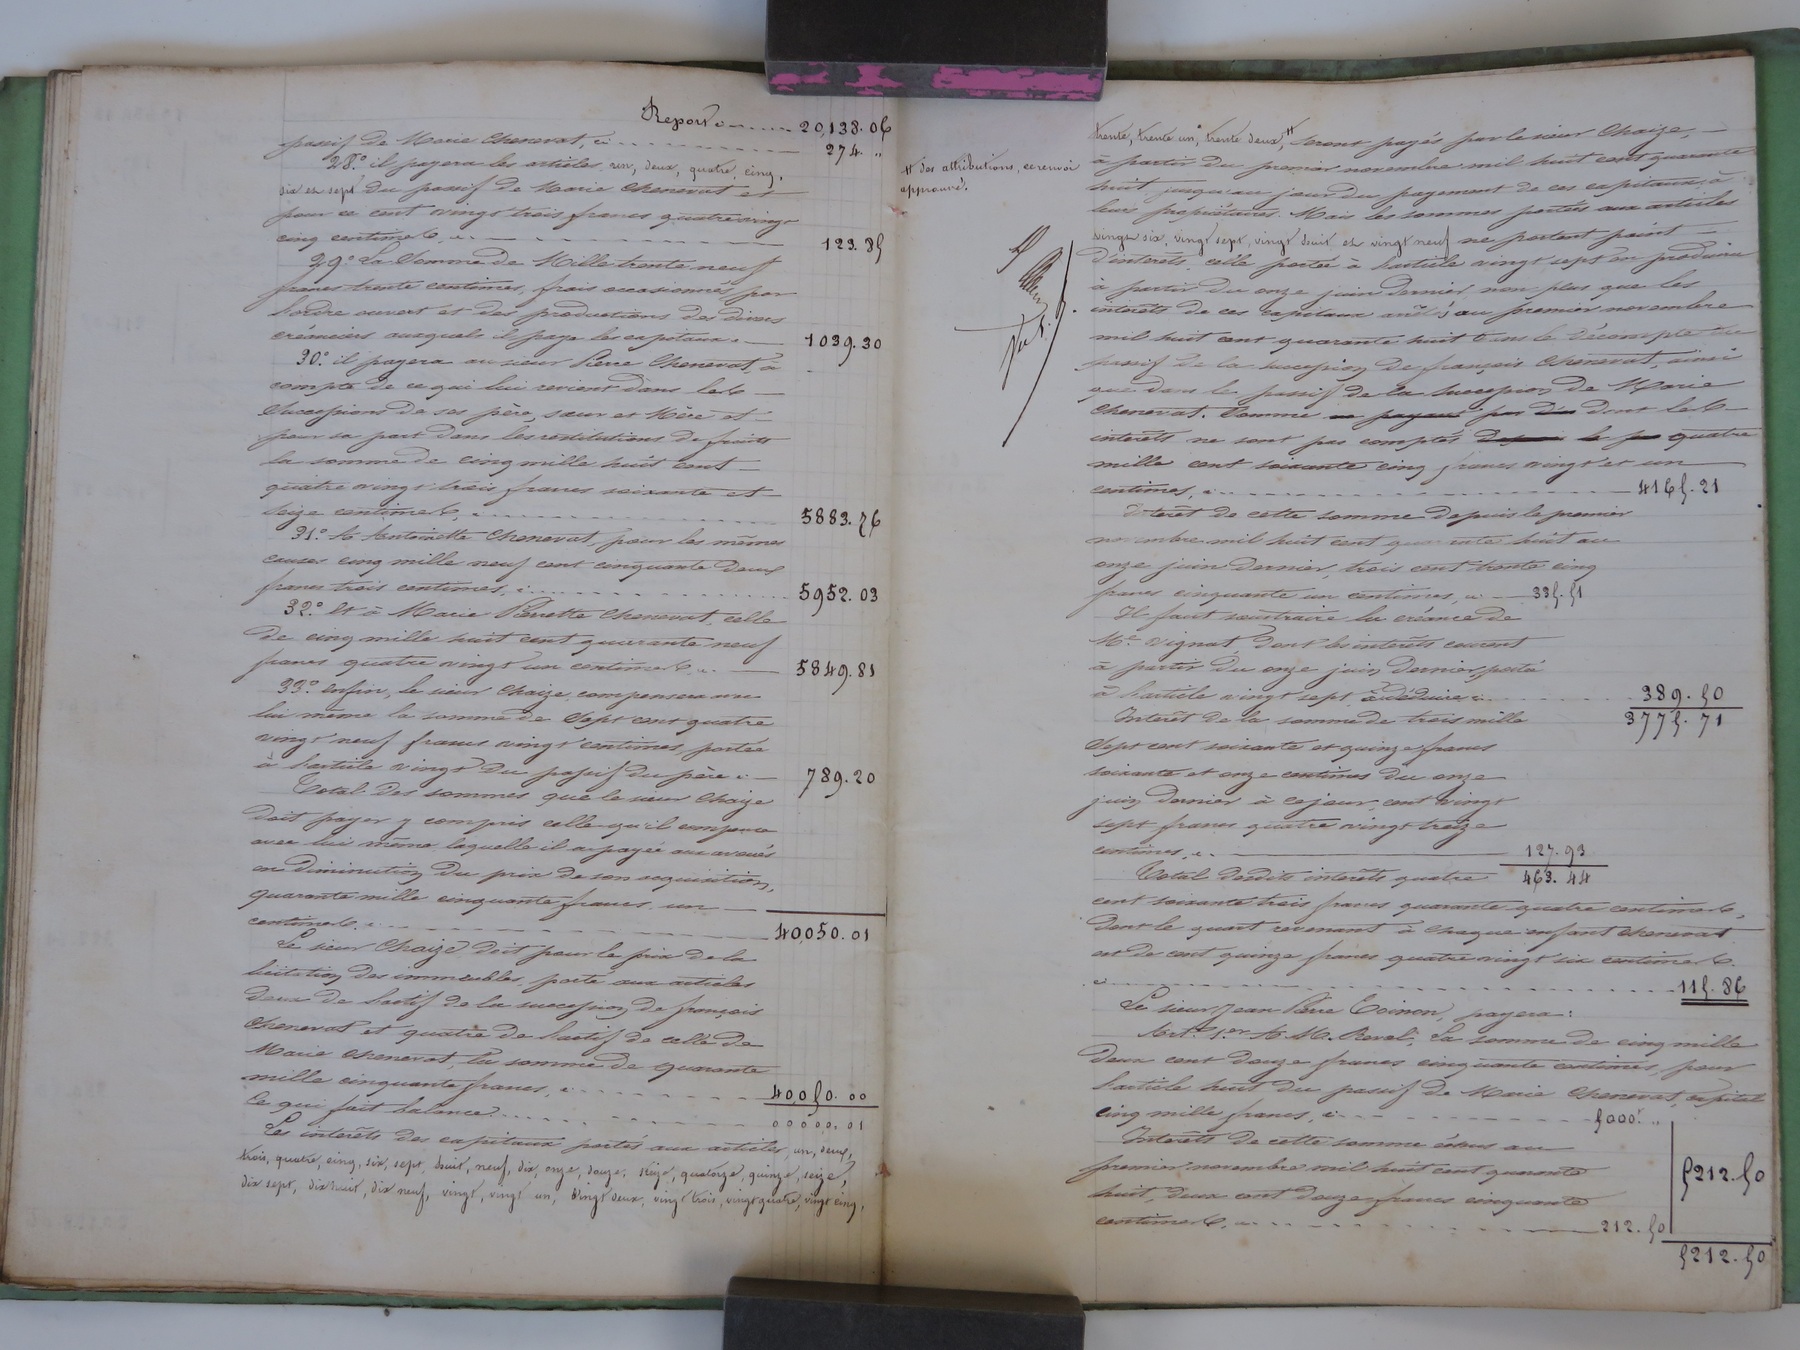 Report ci 20,138.06
passif de Marie Chenevat, ci 274. "
28.° il payera les articles un, deux, quatre, cinq,
six et sept du passif de Marie Chenevat et
pour ce cent vingt trois francs quatre vingt
cinq centimes, ci 123.85
29.° La Somme de Mille trente neuf
francs trente centimes, frais occasionnés par
l'ordre ouvert et des productions des divers
créanciers auxquels il paye les capitaux ci 1039.30
30.° il payera au sieur Pierre Chenevat, à
compte de ce qui lui revient dans les
Successions de ses père, sœur et Mère et
pour sa part dans les restitutions de fruits
la somme de cinq mille huit cent
quatre vingt trois francs soixante et
seize centimes, ci 5883.76
31.° à Antoinette Chenevat, pour les mêmes
causes cinq mille neuf cent cinquante deux
francs trois centimes, ci 5952.03
32.° Et à Marie Pierrette Chenevat, celle
de cinq mille huit cent quarante neuf
francs quatre vingt un centimes, ci 5849.81
33.° enfin, le sieur Chaize compensera en
lui même la somme de Sept cent quatre
vingt neuf francs vingt centimes, portée
à l'article vingt du passif du père ci 789.20
Total des sommes que le sieur Chaize
doit payer y compris celle qu'il compense
avec lui même laquelle il a payée aux avoués
en diminution du prix de son acquisition,
quarante mille cinquante francs un
centimes ci 40,050.01
Le sieur Chaize doit pour le prix de la
licitation des immeubles, porté aux articles
deux de l'actif de la succession de françois
Chenevat et quatre de l'actif de celle de
Marie Chenevat, la somme de quarante
mille cinquante francs, ci 40,050.00
Ce qui fait balance 00000.01
Les intérêts des capitaux portés aux articles, un, deux,
trois, quatre, cinq, six, sept, huit, neuf, dix, onze, douze, treize, quatorze, quinze, seize,
dix sept, dix huit, dix neuf, vingt, vingt un, vingt deux, vingt trois, vingt quatre, vingt cinq,
trente, trente un, trente deux, # seront payés par le sieur Chaize,
# des attributions, ce renvoi
approuvé.
à partir du premier novembre mil huit cent quarante
huit, jusqu'au jour du payement de ces capitaux à
leurs propriétaires. Mais les sommes portées aux articles
vingt six, vingt sept, vingt huit et vingt neuf ne portent point
d'intérêts, celle portée à l'article vingt sept en produira
à partir du onze juin dernier, non plus que les
intérêts de ces capitaux arrêtés au premier novembre
mil huit cent quarante huit dans le décompte du
passif de la succession de françois Chenevat, ainsi
que dans le passif de la succession de Marie
Chenevat. Somme dont les
intérêts ne sont pas comptés quatre
mille cent soixante cinq francs vingt et un
centimes, ci 4165.21
Intérêt de cette somme depuis le premier
novembre mil huit cent quarante huit au
onze juin dernier, trois cent trente cinq
francs cinquante un centimes, ci 335.51
Il faut soustraire la créance de
Me Vignat, dont les intérêts courent
à partir du onze juin dernier, portée
à l'article vingt sept, à déduire ci 389.50
3775.71
Intérêt de la somme de trois mille
Sept cent soixante et quinze francs
soixante et onze centimes du onze
juin dernier à ce jour, cent vingt
sept francs quatre vingt treize
centimes, ci 127.93
Total desdits intérêts quatre 463.44
cent soixante trois francs quarante quatre centimes,
dont le quart revenant à chaque enfant Chenevat
est de cent quinze francs quatre vingt six centimes.
ci 115.86
Le sieur Jean Pierre Coinon, payera :
Art.e 1.er à M. Reval, La somme de cinq mille
deux cent douze francs cinquante centimes, pour
l'article huit du passif de Marie Chenevat, capital
cinq mille francs, ci 5000. "
Intérêts de cette somme échus au
premier novembre mil huit cent quarante
huit, deux cent douze francs cinquante 5212.50
centimes, ci 212.50
5212.50